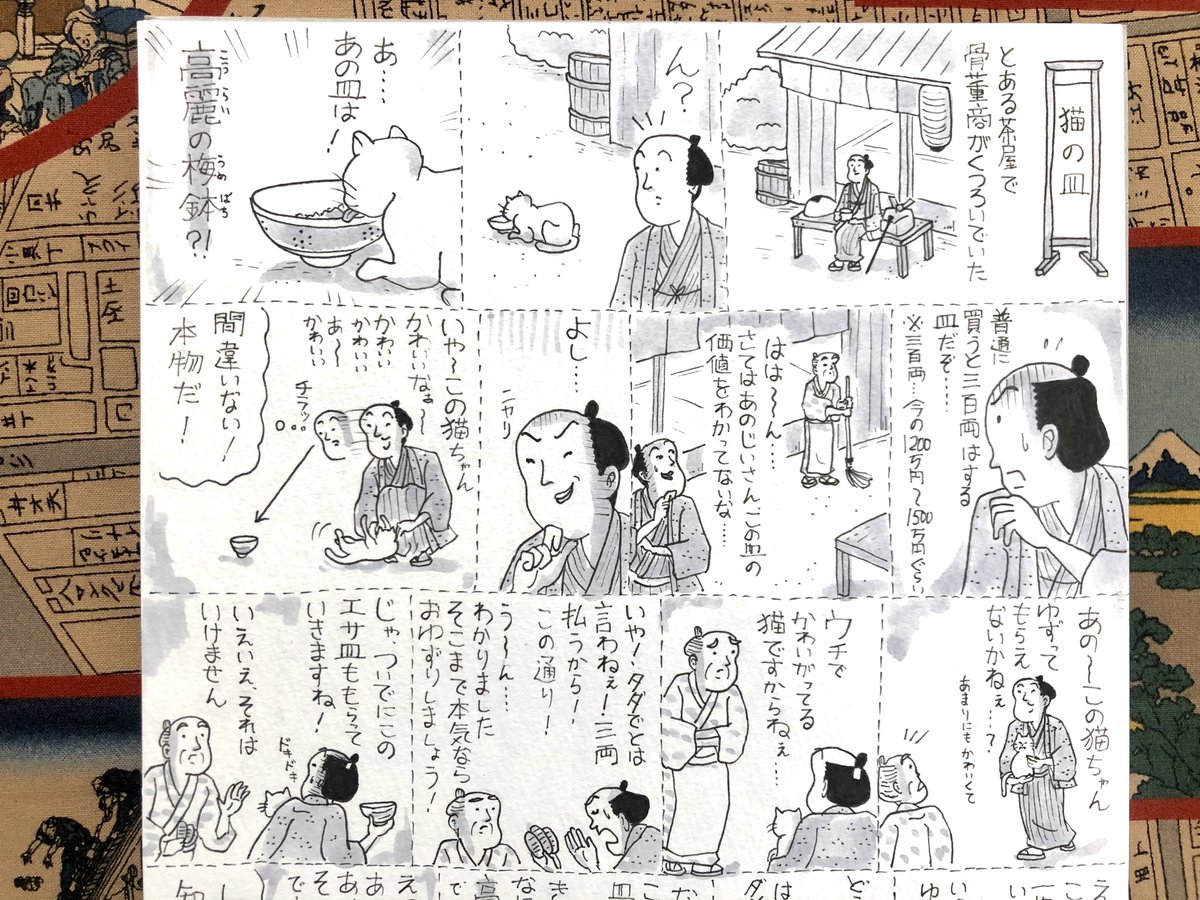 猫の皿
とある茶屋で
骨董商がくつろいでいた
ん?
あ…
あの皿は!
高麗の梅鉢?!
こうらい
うめばち
普通に
買うと三百両はする
皿だぞ……
※三百両…今の1200万円〜1500万円ぐらい
はは〜〜ん……
さてはあのじいさん、この皿の
価値をわかってないな……
よし……
ニヤリ
いや〜この猫ちゃん
かわいいなぁ〜
かわいい
かわいい
あ〜〜
かわいい
チラッ
間違いない!
本物だ!
あの〜この猫ちゃん
ゆずって
もらえ
ないかねぇ…?
あまりにもかわいくて
ウチで
かわいがってる
猫ですからねぇ…
いや!タダでとは
言わねぇ!三両
払うから!
この通り!
う〜〜ん…
わかりました
そこまで本気なら
おゆずりしましょう!
じゃ、ついでにこの
エサ皿ももらって
いきますね!
ドキドキ
いえいえ、それは
いけません